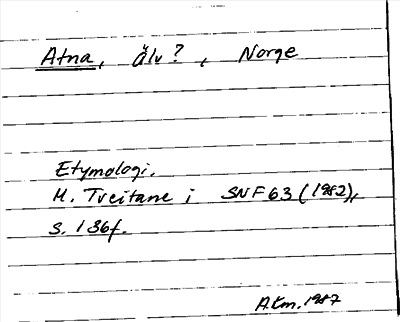 Atna, älv?, Norge
Etymologi.
M. Tveitane i SNF 63 (1982),
s. 136f.
A.Km. 1987